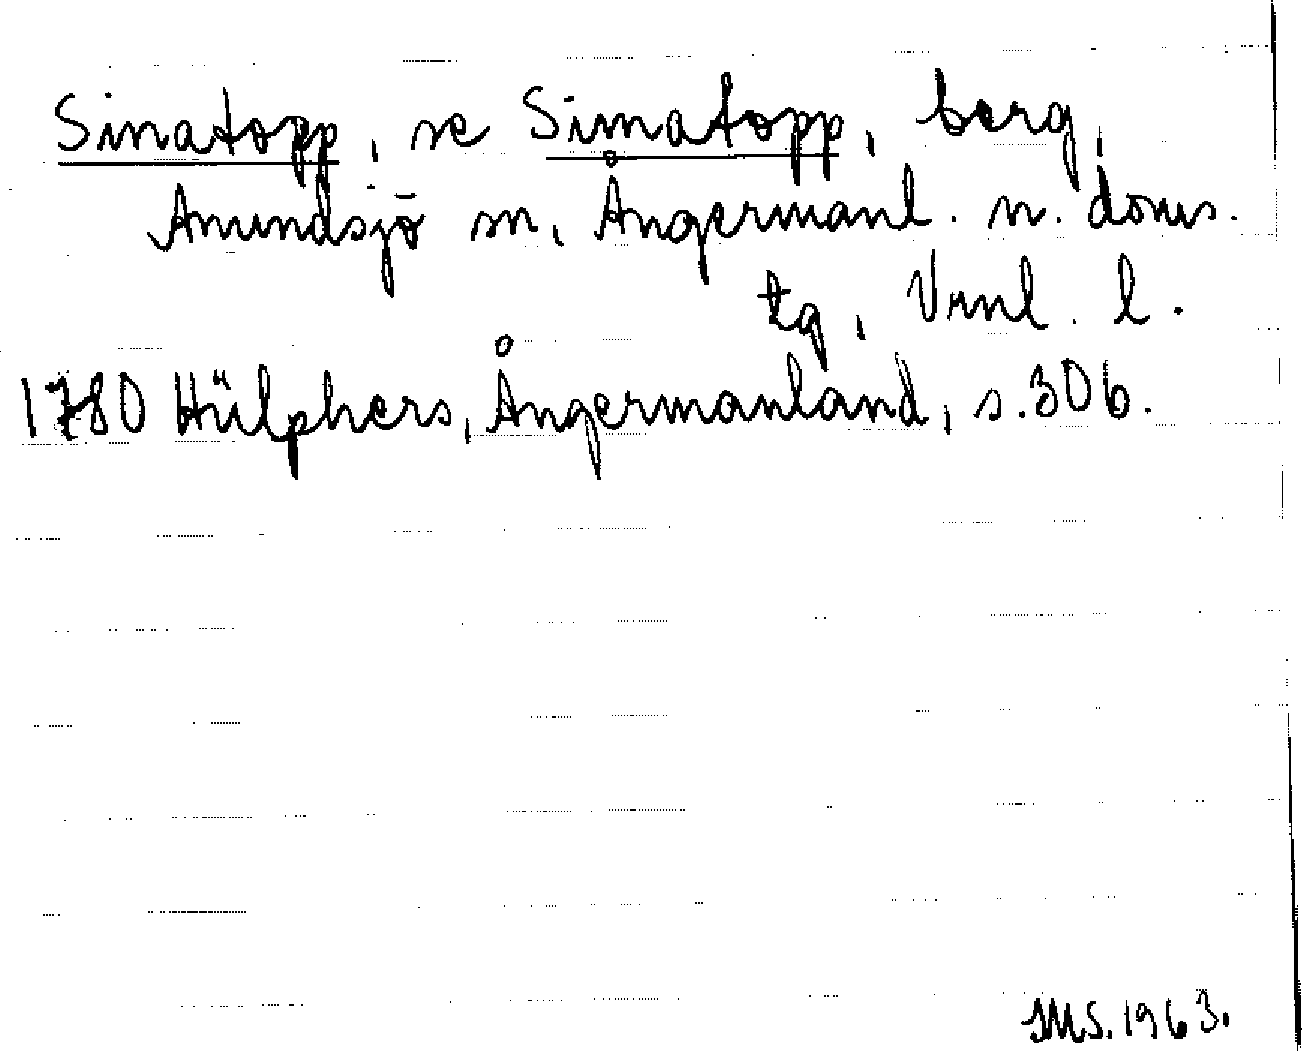 Sinatopp, se Simatopp, berg,
Anundsjö sn, Ångermanl. n. doms.
tg, Vrnl. l.
1780 Hülphers, Ångermanland, s. 306.
IMS. 1963.